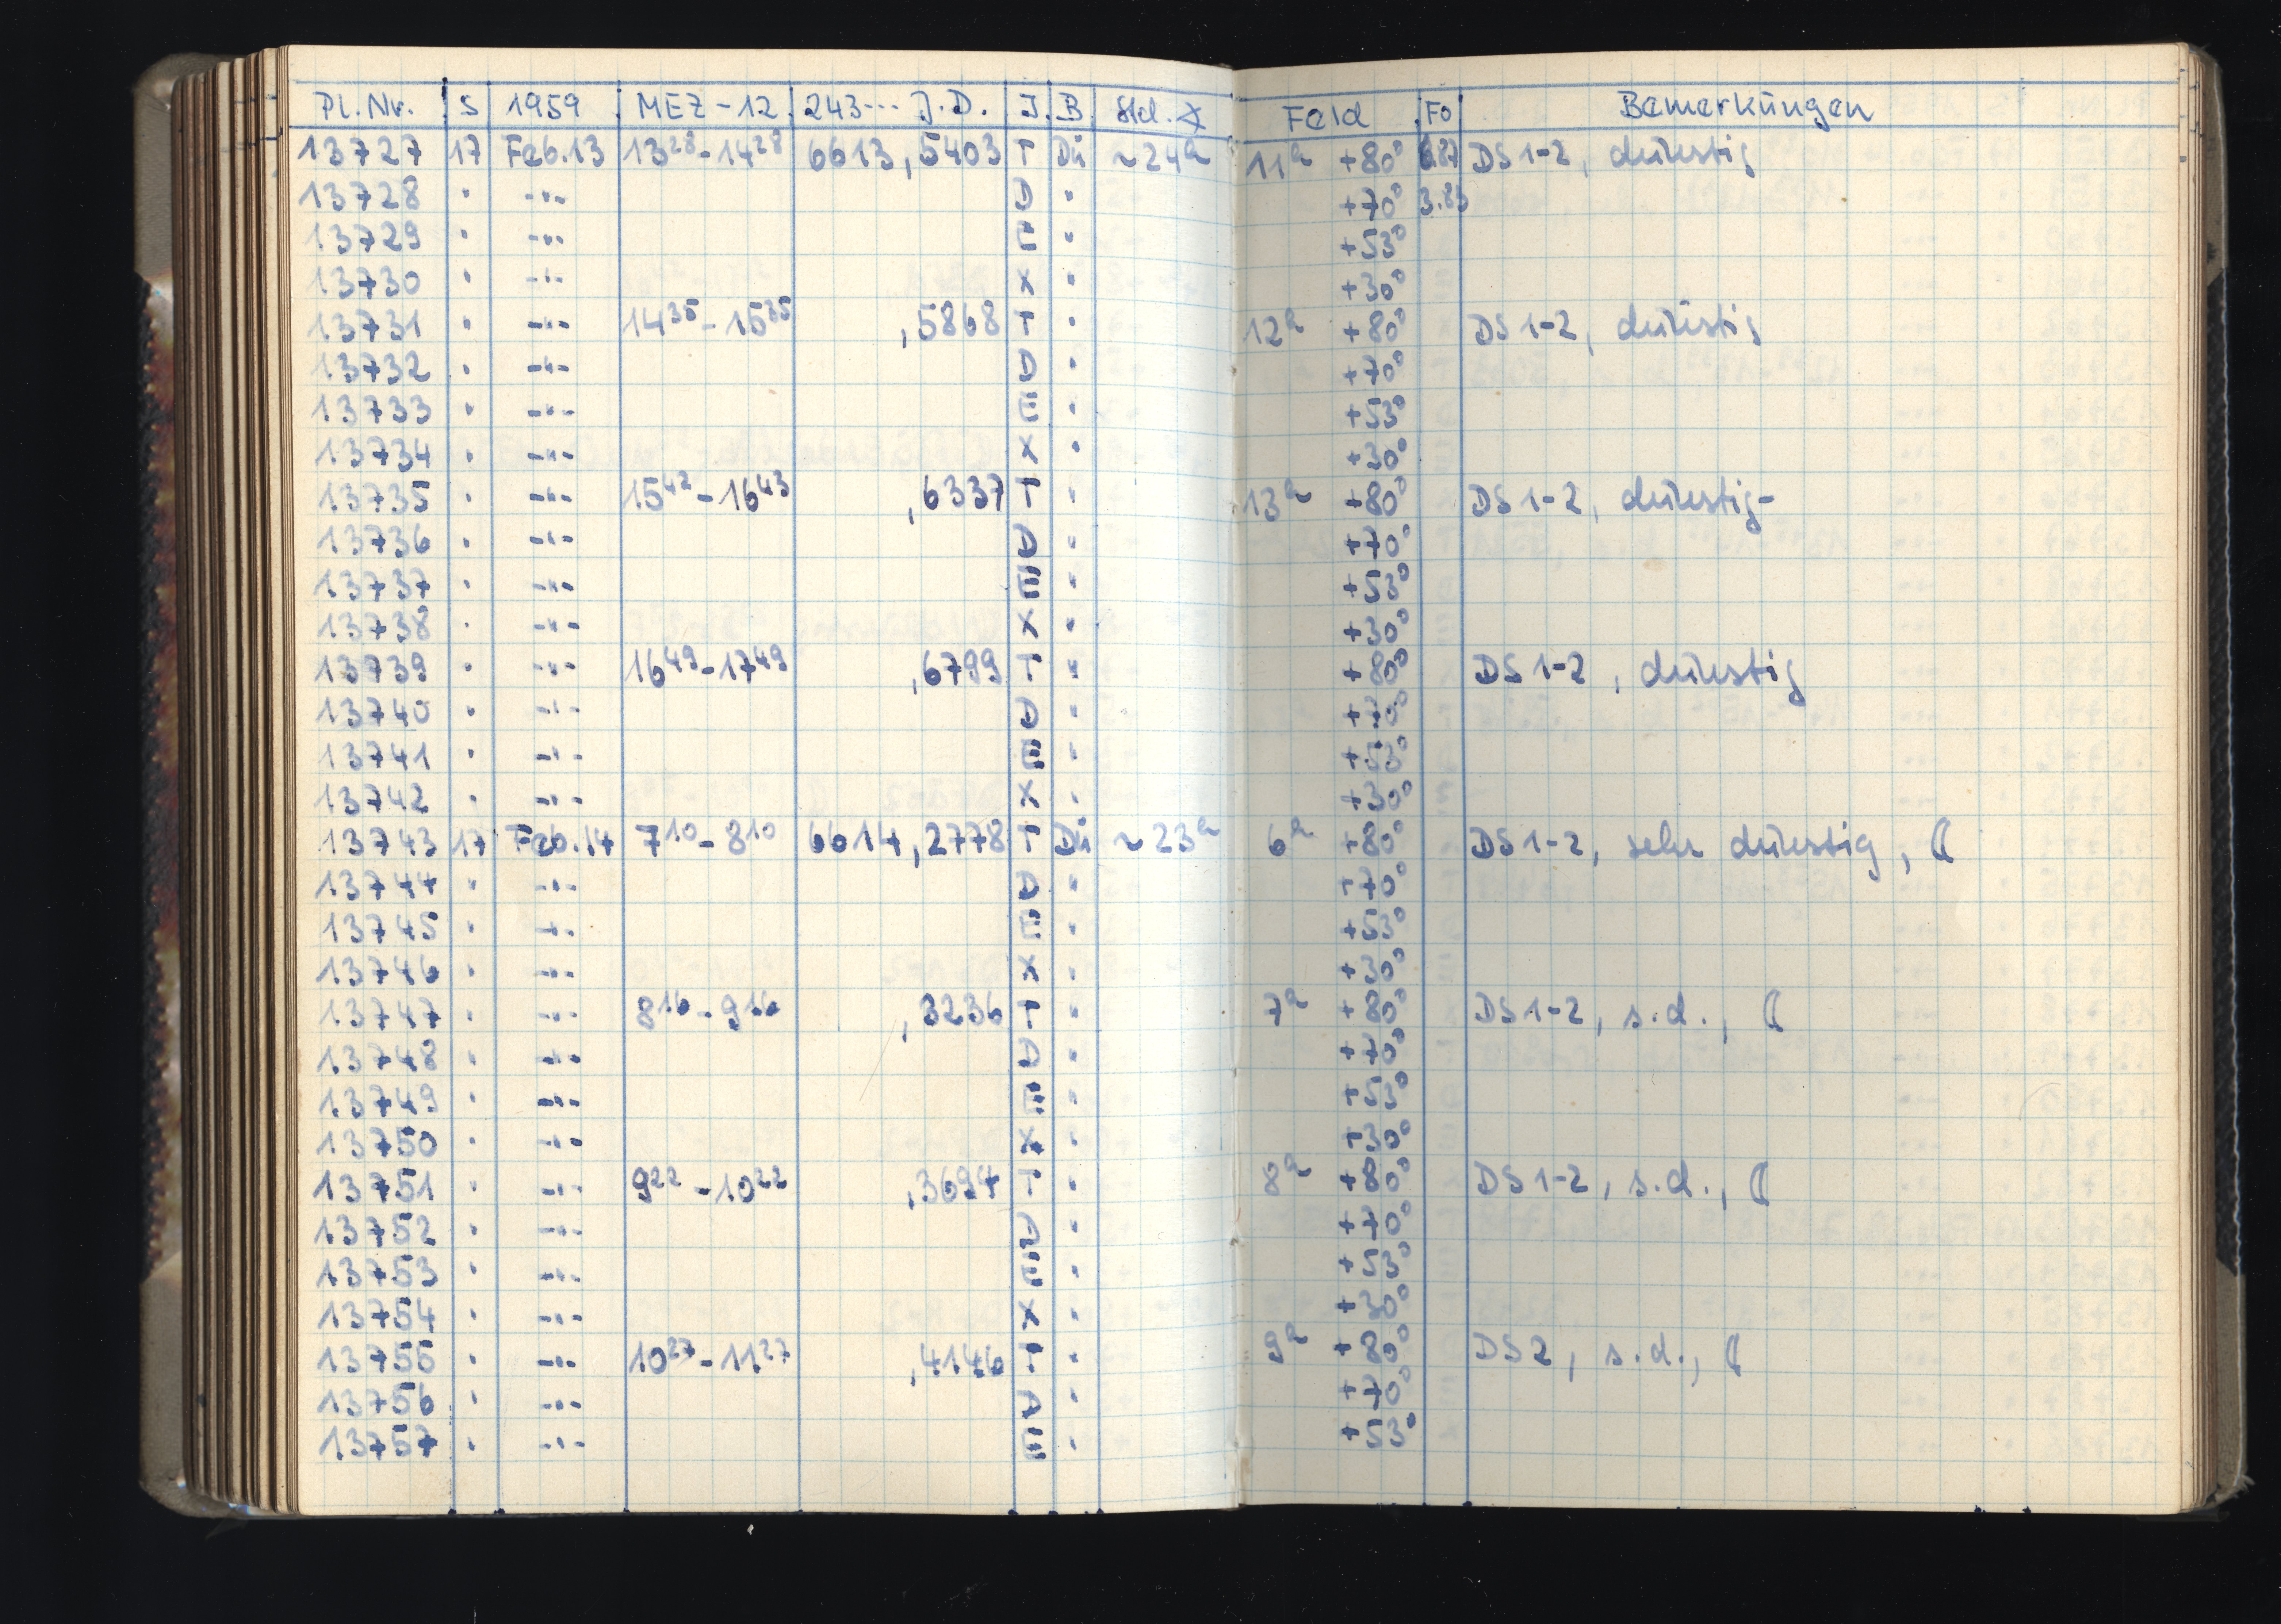 Pl.Nr. S 1959 MEZ-12 243··· J.D. I. B. Std.∢ Feld Fo Bemerkungen
13727 17 Feb.13 13²⁸-14²⁸ 6613,5403 T Dü ~24ᵃ 11ᵃ +80° DS 1-2, dunstig
13728 " --- D " +70° 3.83
13729 " --- E " +53°
13730 " --- X " +30°
13731 " --- 14³⁵-15³⁵ ,5868 T " 12ᵃ +80° DS 1-2, dunstig
13732 " --- D " +70°
13733 " --- E " +53°
13734 " --- X " +30°
13735 " --- 15⁴²-16⁴³ ,6337 T " 13ᵃ +80° DS 1-2, dunstig-
13736 " --- D " +70°
13737 " --- E " +53°
13738 " --- X " +30°
13739 " --- 16⁴⁹-17⁴⁹ ,6799 T " +80° DS 1-2, dunstig
13740 " --- D " +70°
13741 " --- E " +53°
13742 " --- X " +30°
13743 17 Feb.14 7¹⁰-8¹⁰ 6614,2778 T Dü ~23ᵃ 6ᵃ +80° DS 1-2, sehr dunstig, ☾
13744 " --- D " +70°
13745 " --- E " +53°
13746 " --- X " +30°
13747 " --- 8¹⁶-9¹⁶ ,3236 T " 7ᵃ +80° DS 1-2, s.d., ☾
13748 " --- D " +70°
13749 " --- E " +53°
13750 " --- X " +30°
13751 " --- 9²²-10²² ,3694 T " 8ᵃ +80° DS 1-2, s.d., ☾
13752 " --- D " +70°
13753 " --- E " +53°
13754 " --- X " +30°
13755 " --- 10²⁷-11²⁷ ,4146 T " 9ᵃ +80° DS 2, s.d., ☾
13756 " --- D " +70°
13757 " --- E " +53°